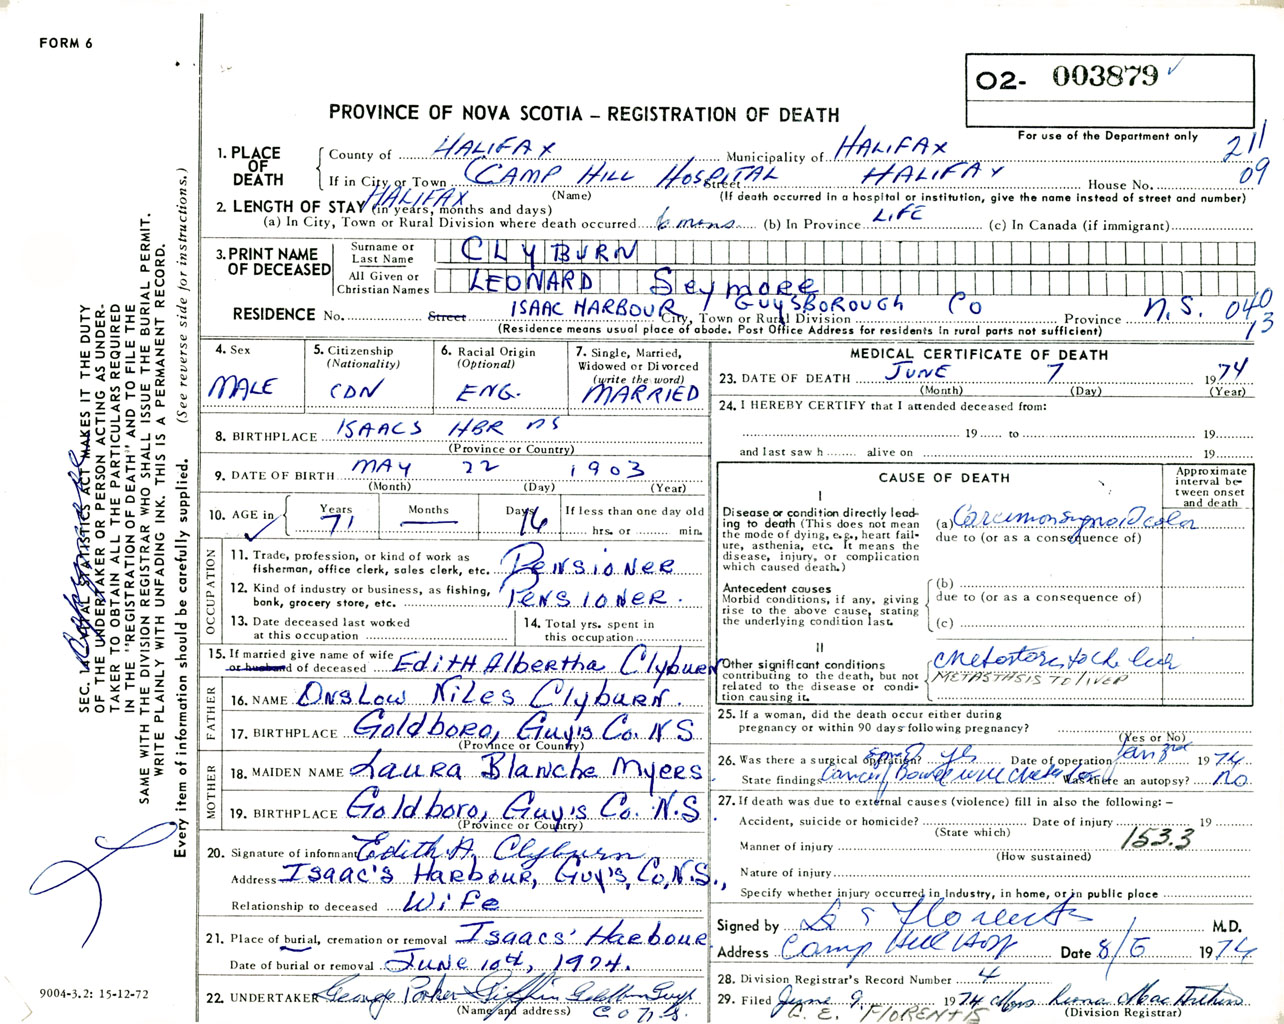 FORM 6
O2- 003879
PROVINCE OF NOVA SCOTIA – REGISTRATION OF DEATH
For use of the Department only
211
09
1. PLACE OF DEATH
County of HALIFAX Municipality of HALIFAX
If in City or Town CAMP HILL HOSPITAL Street HALIFAX House No.
HALIFAX (Name) (If death occurred in a hospital or institution, give the name instead of street and number)
2. LENGTH OF STAY (in years, months and days)
(a) In City, Town or Rural Division where death occurred 6 mons (b) In Province LIFE (c) In Canada (if immigrant)
3. PRINT NAME OF DECEASED
Surname or Last Name CLYBURN
All Given or Christian Names LEONARD Seymore
RESIDENCE No. Street ISAAC HARBOUR GUYSBOROUGH CO Province N.S. 040
City, Town or Rural Division 13
(Residence means usual place of abode. Post Office Address for residents in rural parts not sufficient)
4. Sex MALE
5. Citizenship (Nationality) CDN
6. Racial Origin (Optional) ENG.
7. Single, Married, Widowed or Divorced (write the word) MARRIED
8. BIRTHPLACE ISAACS HBR NS
(Province or Country)
9. DATE OF BIRTH MAY 22 1903
(Month) (Day) (Year)
10. AGE in Years 71 Months — Days 16 If less than one day old hrs. or min.
OCCUPATION
11. Trade, profession, or kind of work as fisherman, office clerk, sales clerk, etc. Pensioner
12. Kind of industry or business, as fishing, bank, grocery store, etc. Pensioner.
13. Date deceased last worked at this occupation
14. Total yrs. spent in this occupation
15. If married give name of wife or husband of deceased Edith Albertha Clyburn
FATHER
16. NAME Onslow Niles Clyburn.
17. BIRTHPLACE Goldboro, Guy's Co. N.S
(Province or Country)
MOTHER
18. MAIDEN NAME Laura Blanche Myers
19. BIRTHPLACE Goldboro, Guy's Co. N.S.
(Province or Country)
20. Signature of informant Edith A. Clyburn
Address Isaac's Harbour, Guy's, Co, N.S.,
Relationship to deceased Wife
21. Place of burial, cremation or removal Isaacs' Harbour
Date of burial or removal June 10th, 1974.
22. UNDERTAKER George Parker Giffin Goldboro Guys
(Name and address) Co N.S.
MEDICAL CERTIFICATE OF DEATH
23. DATE OF DEATH JUNE 7 1974
(Month) (Day) (Year)
24. I HEREBY CERTIFY that I attended deceased from:
19 to 19
and last saw h alive on 19
CAUSE OF DEATH
Approximate interval between onset and death
I
Disease or condition directly leading to death (This does not mean the mode of dying, e.g., heart failure, asthenia, etc. It means the disease, injury, or complication which caused death.)
(a) Carcinoma sygmoid colon
due to (or as a consequence of)
Antecedent causes
Morbid conditions, if any, giving rise to the above cause, stating the underlying condition last.
(b)
due to (or as a consequence of)
(c)
II
Other significant conditions contributing to the death, but not related to the disease or condition causing it.
Metastases to the liver
METASTASIS TO LIVER
25. If a woman, did the death occur either during pregnancy or within 90 days following pregnancy?
(Yes or No)
26. Was there a surgical operation? yes Date of operation Jan 1974
State findings Cancer Bowel Was there an autopsy? No
27. If death was due to external causes (violence) fill in also the following: –
Accident, suicide or homicide? Date of injury 19
(State which) 153.3
Manner of injury
(How sustained)
Nature of injury
Specify whether injury occurred in Industry, in home, or in public place
Signed by Florentis M.D.
Address Camp Hill Hosp Date 8/6 1974
28. Division Registrar's Record Number 4
29. Filed June 9 1974 Mrs
C. E. FLORENTIS (Division Registrar)
SEC. 14 VITAL STATISTICS ACT MAKES IT THE DUTY
OF THE UNDERTAKER OR PERSON ACTING AS UNDER-
TAKER TO OBTAIN ALL THE PARTICULARS REQUIRED
IN THE "REGISTRATION OF DEATH" AND TO FILE THE
SAME WITH THE DIVISION REGISTRAR WHO SHALL ISSUE THE BURIAL PERMIT.
WRITE PLAINLY WITH UNFADING INK. THIS IS A PERMANENT RECORD.
Every item of information should be carefully supplied. (See reverse side for instructions.)
9004-3.2: 15-12-72